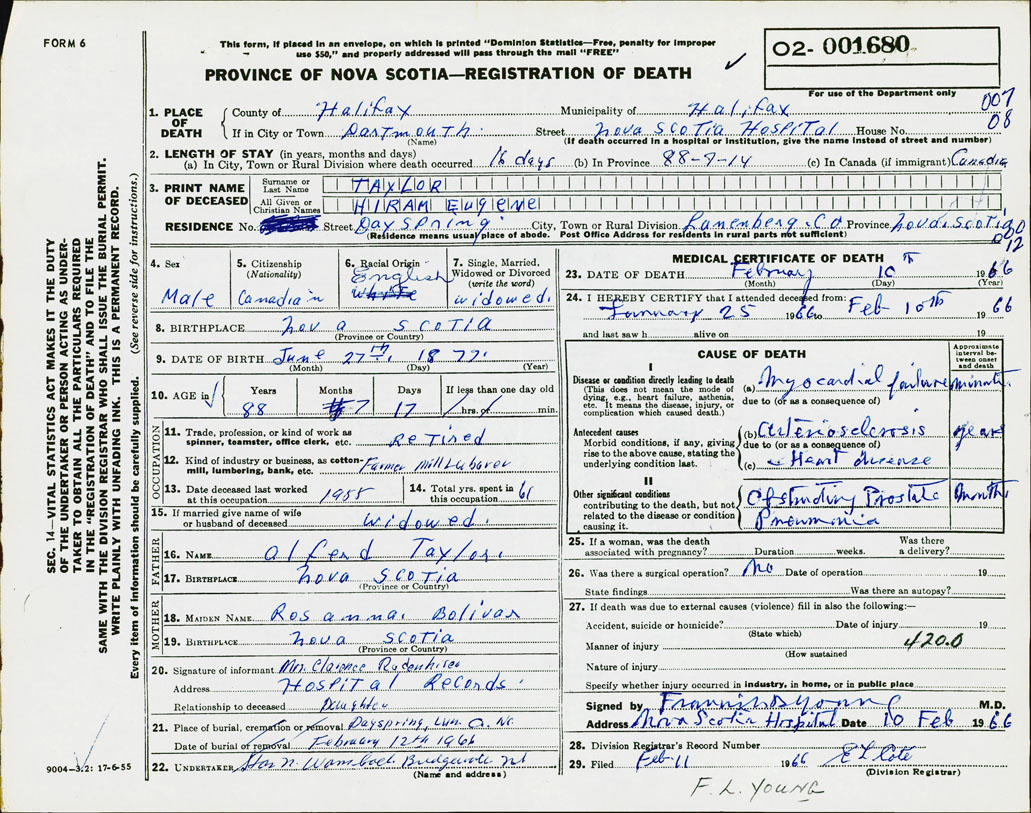 FORM 6
This form, if placed in an envelope, on which is printed "Dominion Statistics—Free, penalty for improper
use $50," and properly addressed will pass through the mail "FREE"
PROVINCE OF NOVA SCOTIA—REGISTRATION OF DEATH
02- 001680
For use of the Department only
007
08
1. PLACE OF DEATH
County of Halifax Municipality of Halifax
If in City or Town Dartmouth. Street Nova Scotia Hospital House No.
(Name) (If death occurred in a hospital or institution, give the name instead of street and number)
2. LENGTH OF STAY (in years, months and days)
(a) In City, Town or Rural Division where death occurred 16 days (b) In Province 88-7-14 (c) In Canada (if immigrant) Canadian
3. PRINT NAME OF DECEASED
Surname or Last Name TAYLOR
All Given or Christian Names HIRAM EUGENE
RESIDENCE No. Street Dayspring City, Town or Rural Division Lunenberg. Co Province Nova Scotia
(Residence means usual place of abode. Post Office Address for residents in rural parts not sufficient)
12
4. Sex
Male
5. Citizenship
(Nationality)
Canadian
6. Racial Origin
English
White
7. Single, Married,
Widowed or Divorced
(write the word)
widowed.
8. BIRTHPLACE Nova Scotia
(Province or Country)
9. DATE OF BIRTH June 27th. 1877.
(Month) (Day) (Year)
10. AGE in
Years Months Days If less than one day old
88 7 17 hrs. or min.
OCCUPATION
11. Trade, profession, or kind of work as
spinner, teamster, office clerk, etc. Retired
12. Kind of industry or business, as cotton-
mill, lumbering, bank, etc. Farmer Mill Laborer
13. Date deceased last worked
at this occupation 1955
14. Total yrs. spent in
this occupation 61
15. If married give name of wife
or husband of deceased widowed.
FATHER
16. NAME Alferd Taylor.
17. BIRTHPLACE Nova Scotia
(Province or Country)
MOTHER
18. MAIDEN NAME Rosanna Bolivar
19. BIRTHPLACE Nova Scotia
(Province or Country)
20. Signature of informant Mrs. Clarence
Address Hospital Records.
Relationship to deceased Daughter
21. Place of burial, cremation or removal Dayspring, Lun. Co. NS
Date of burial or removal February 12th 1966
22. UNDERTAKER
(Name and address)
MEDICAL CERTIFICATE OF DEATH
23. DATE OF DEATH February 10th 1966
(Month) (Day) (Year)
24. I HEREBY CERTIFY that I attended deceased from:
January 25 1966 to Feb 10th 1966
and last saw h alive on 19
CAUSE OF DEATH
Approximate interval between onset and death
I
Disease or condition directly leading to death
(This does not mean the mode of
dying, e.g., heart failure, asthenia,
etc. It means the disease, injury, or
complication which caused death.)
(a) Myocardial failure minutes
due to (or as a consequence of)
Antecedent causes
Morbid conditions, if any, giving
rise to the above cause, stating the
underlying condition last.
(b) arteriosclerosis years
due to (or as a consequence of)
(c) Heart disease
II
Other significant conditions
contributing to the death, but not
related to the disease or condition
causing it.
Obstructing Prostate months
Pneumonia
25. If a woman, was the death
associated with pregnancy? Duration weeks. Was there
a delivery?
26. Was there a surgical operation? No Date of operation 19
State findings Was there an autopsy?
27. If death was due to external causes (violence) fill in also the following:—
Accident, suicide or homicide? Date of injury 19
(State which)
Manner of injury 420.0
(How sustained
Nature of injury
Specify whether injury occurred in industry, in home, or in public place
Signed by M.D.
Address Nova Scotia Hospital Date 10 Feb 1966
28. Division Registrar's Record Number
29. Filed Feb 11 1966
(Division Registrar)
F. L. YOUNG
SEC. 14—VITAL STATISTICS ACT MAKES IT THE DUTY
OF THE UNDERTAKER OR PERSON ACTING AS UNDER-
TAKER TO OBTAIN ALL THE PARTICULARS REQUIRED
IN THE "REGISTRATION OF DEATH" AND TO FILE THE
SAME WITH THE DIVISION REGISTRAR WHO SHALL ISSUE THE BURIAL PERMIT.
WRITE PLAINLY WITH UNFADING INK. THIS IS A PERMANENT RECORD.
Every item of information should be carefully supplied. (See reverse side for instructions.)
9004—3,2: 17-6-55